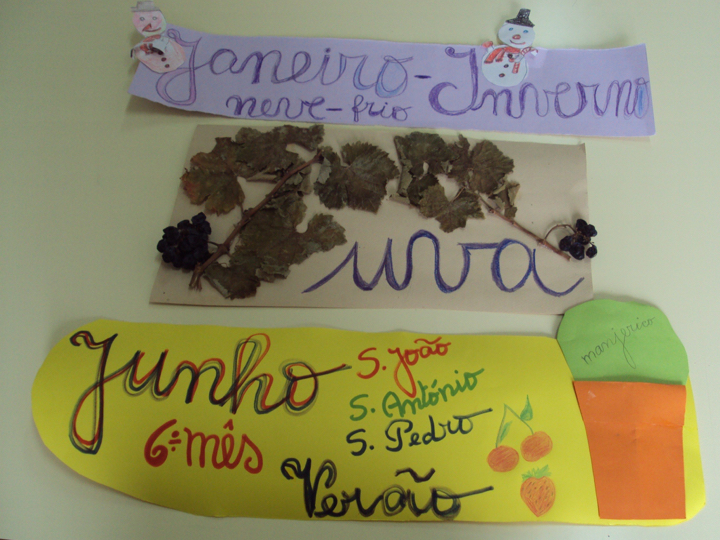 Janeiro - Inverno
neve - frio
uva
Junho
S. João
S. António
S. Pedro
6º mês
Verão
manjerico